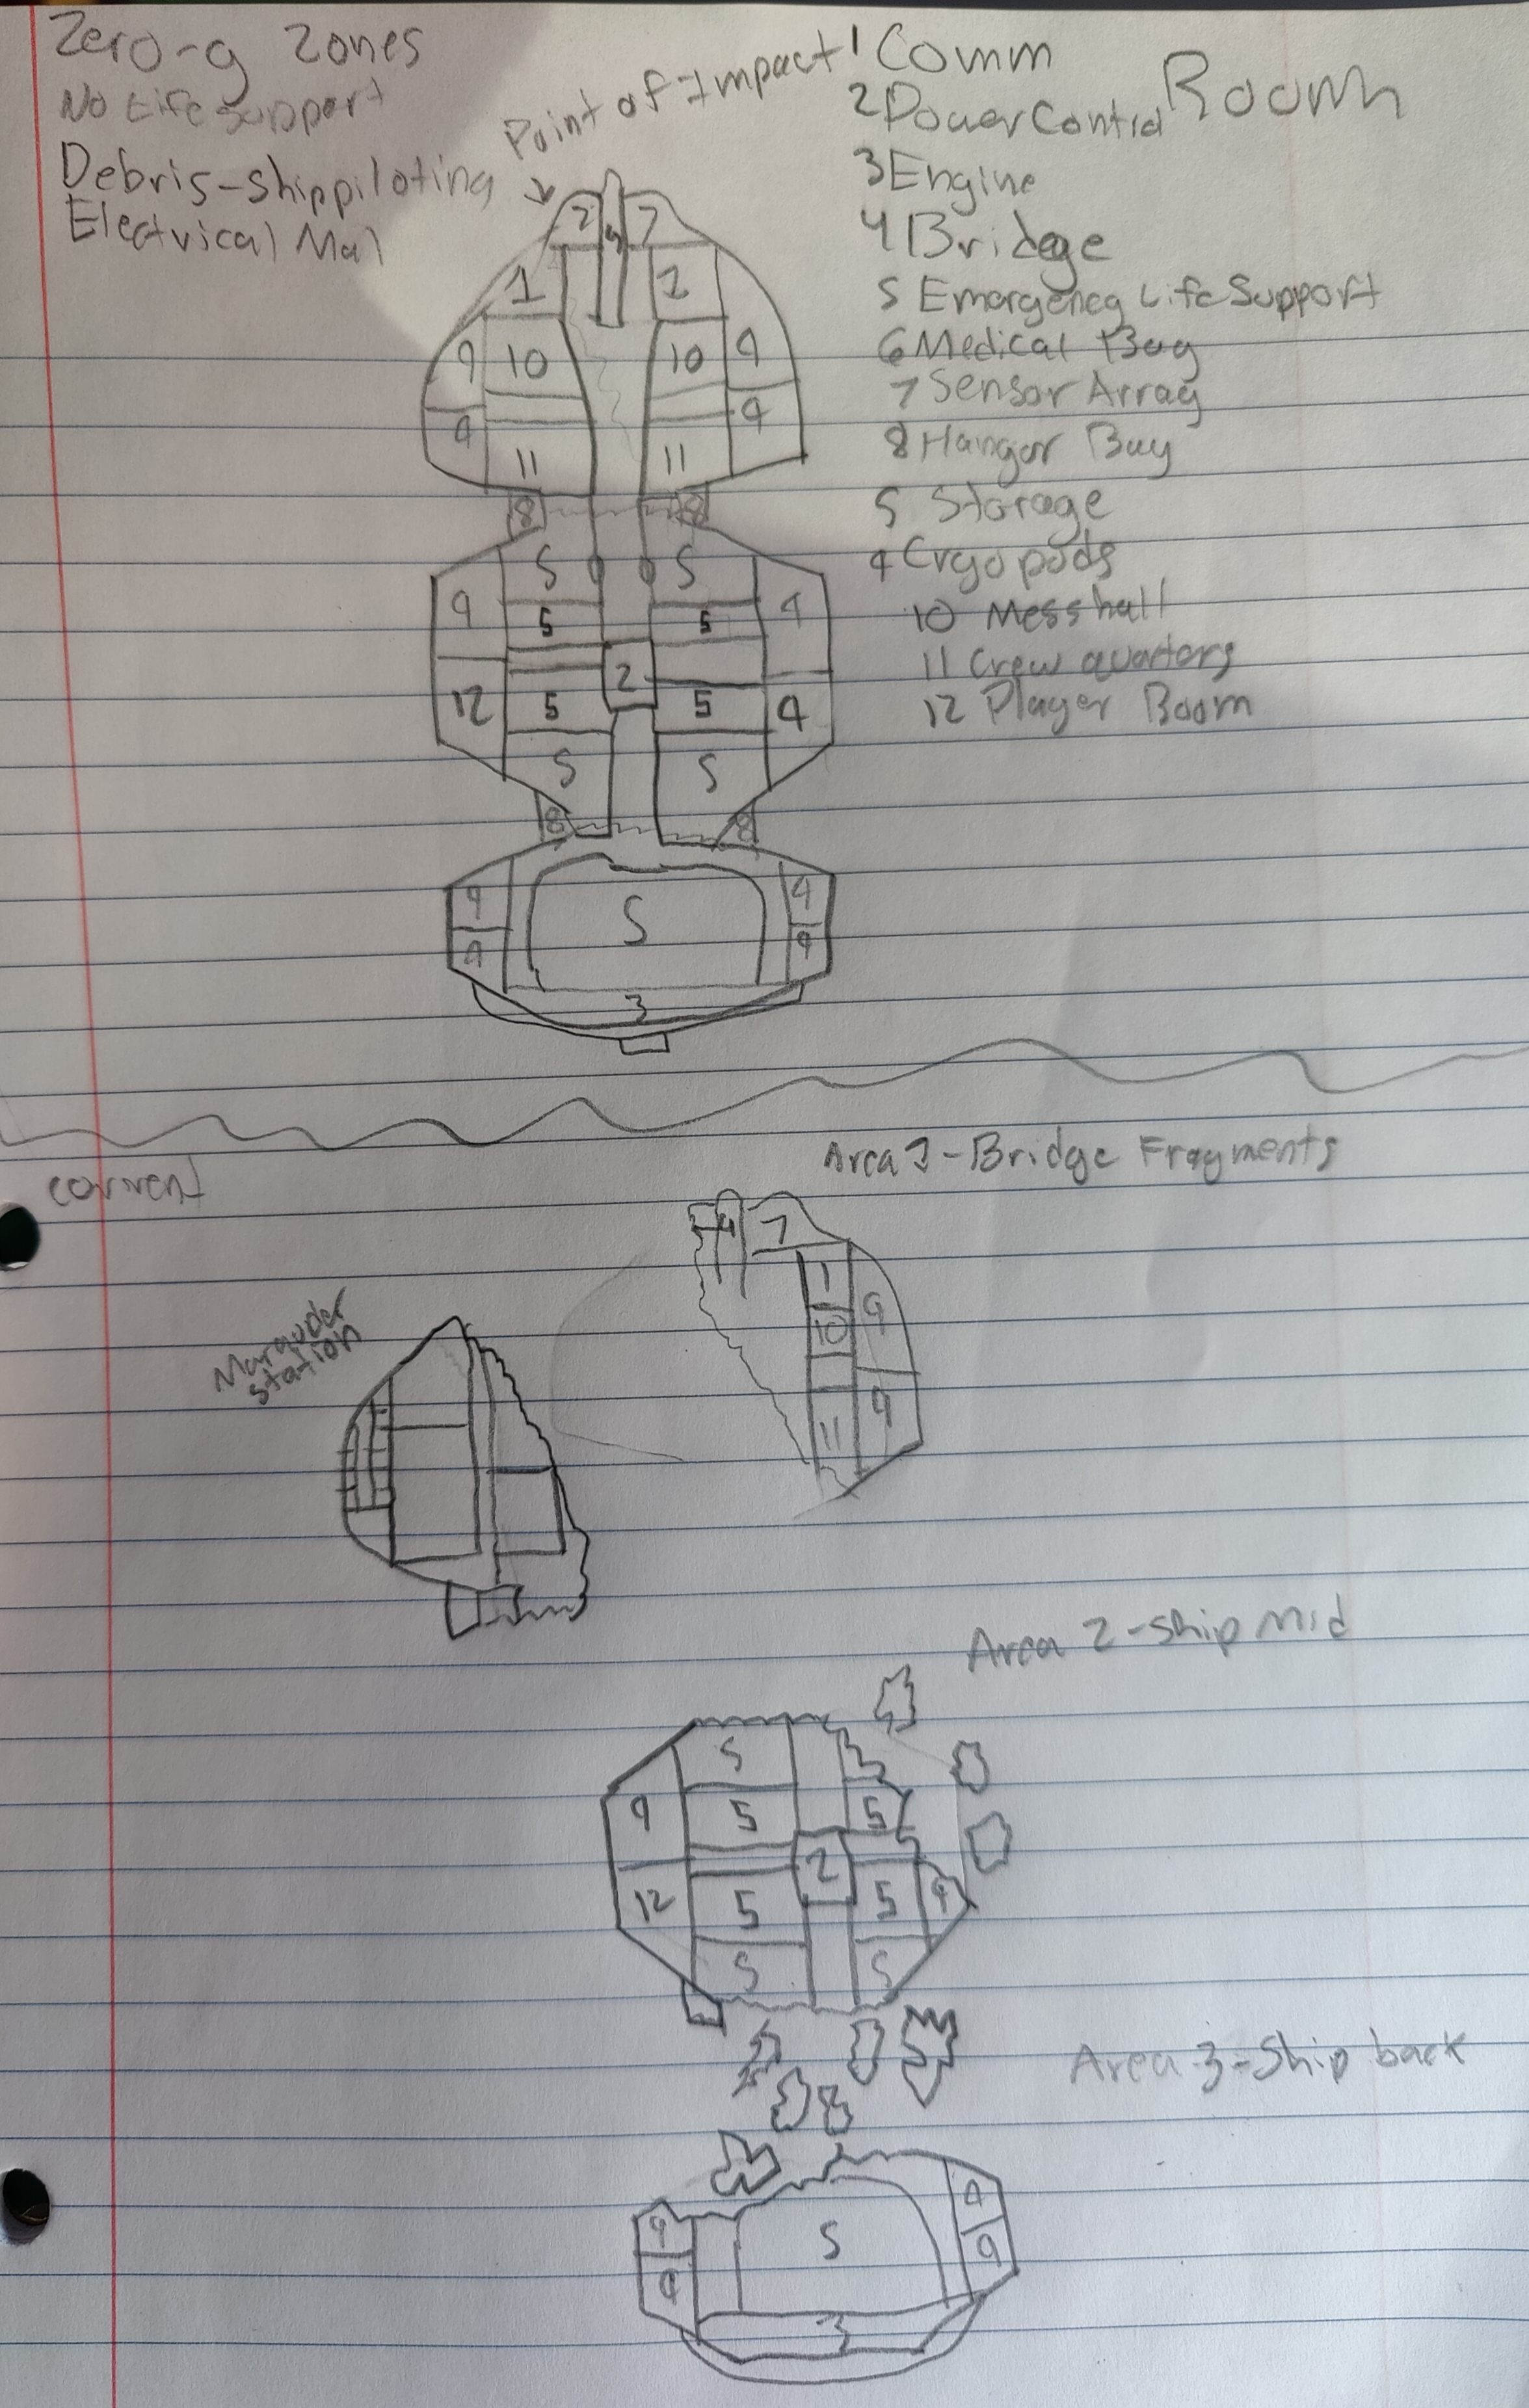 Zero-g Zones
No Life Support
Debris-ship piloting
Electrical Mal
Point of Impact
1 Comm Room
2 Power Control
3 Engine
4 Bridge
5 Emergency Life Support
6 Medical Bay
7 Sensor Array
8 Hangar Bay
S Storage
9 Cryo pods
10 Mess hall
11 Crew quarters
12 Player Room
2 4 7
1 2
9 10 10 9
9 11 11 9
8 8
S S
9 5 5 9
2
12 5 5 9
S S
8 8
9 S 9
9 9
3
current
Area 1-Bridge Fragments
4 7
1
10 9
11 9
Marauder
station
Area 2-Ship Mid
S
9 5 5
2
12 5 5 9
S S
Area 3-Ship back
9 S 9
9 9
3